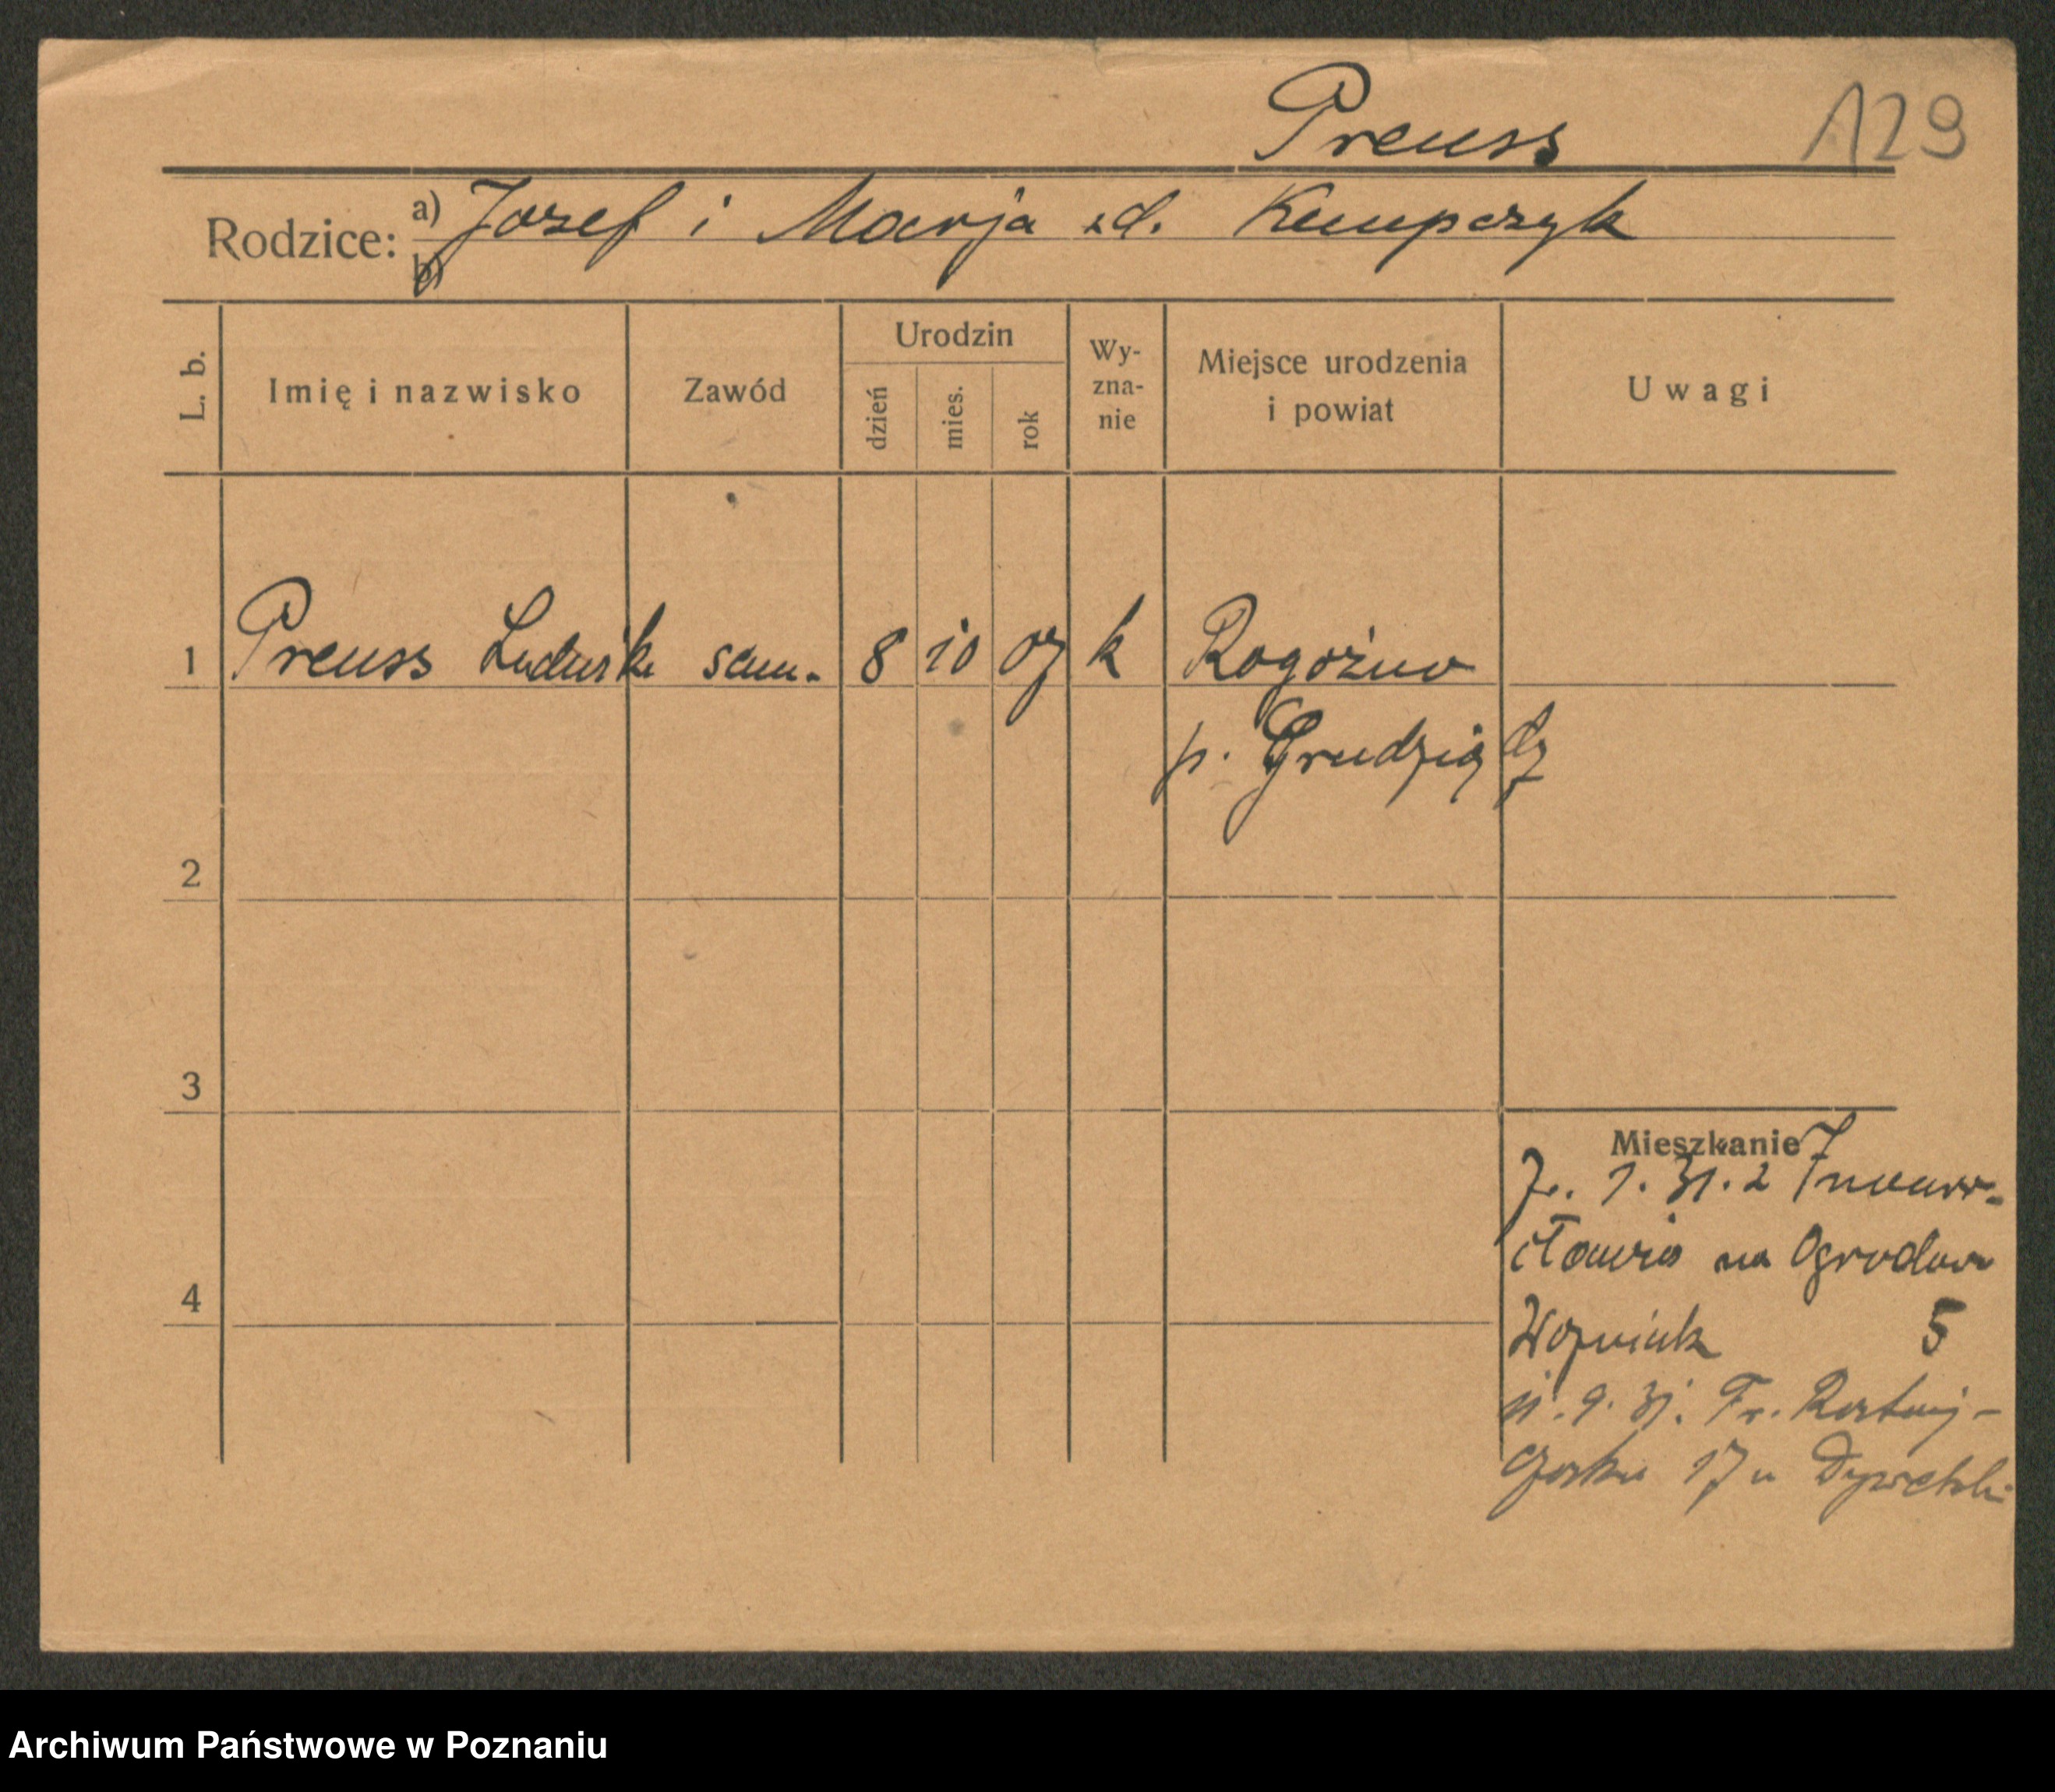 Preuss 129
Rodzice: a) Jozef i Marja zd. Kempczyk
b)
L. b. Imię i nazwisko Zawód Urodzin dzień mies. rok Wy-zna-nie Miejsce urodzenia i powiat Uwagi
1 Preuss Ludwika sam. 8 10 07 k Rogoźno
p. Grudziądz
2
3
Mieszkanie
1. 31. z Inowro-
cławia na Ogrodow
4
Wozniak 5
11. 9. 31. Fr. Rataj-
czaka 17 u
Archiwum Państwowe w Poznaniu